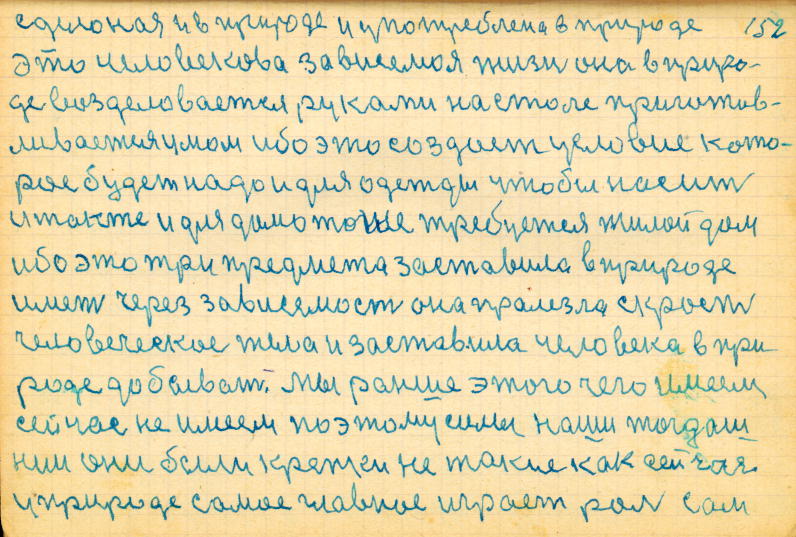 сделоная и в природе и употреблена в природе 152
это человекова зависемоя жизн она в приро-
де возделовается руками на столе приготов-
ливается умом ибо это создает условие кото-
рое будет надо и для одежды чтобы насит
и также и для дамо тоже требуется жилой дом
ибо это три предмета заставила в природе
имет через зависемост она пралезла скрост
человеческое тела и заставила человека в при
роде добыват. Мы ранше этого чего имеем
сейчас не имеем поэтому силы наши тогдаш
нии они были крепки не такие как сейчас
у природе самое главное играет рол сам